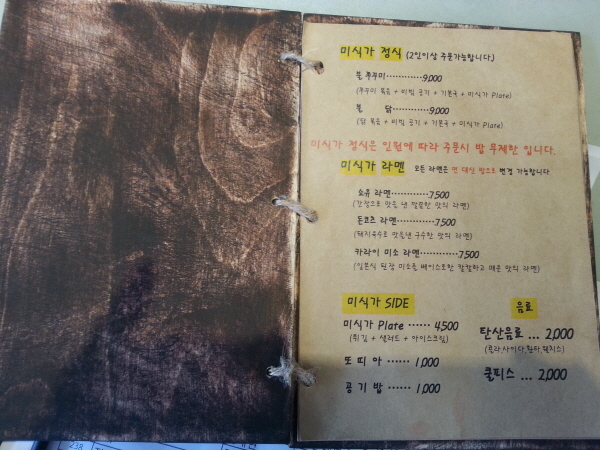 미식가 정식 (2인이상 주문가능합니다)
불 쭈꾸미............9,000
(쭈꾸미 볶음 + 비빔 공기 + 기본국 + 미식가 Plate)
불 닭............9,000
(닭 볶음 + 비빔 공기 + 기본국 + 미식가 Plate)
미식가 정식은 인원에 따라 주문시 밥 무제한 입니다.
미식가 라멘 모든 라멘은 면 대신 밥으로 변경 가능합니다
쇼유 라멘............7,500
(간장으로 맛을 낸 깔끔한 맛의 라멘)
돈코츠 라멘............7,500
(돼지육수로 맛을낸 구수한 맛의 라멘)
카라이 미소 라멘............7,500
(일본식 된장 미소를 베이스로한 칼칼하고 매운 맛의 라멘)
미식가 SIDE
미식가 Plate ...... 4,500
(튀김 + 샐러드 + 아이스크림)
또 띠 아 ...... 1,000
공 기 밥 ...... 1,000
음료
탄산음료 ... 2,000
(콜라,사이다,환타,웰치스)
쿨피스 ... 2,000